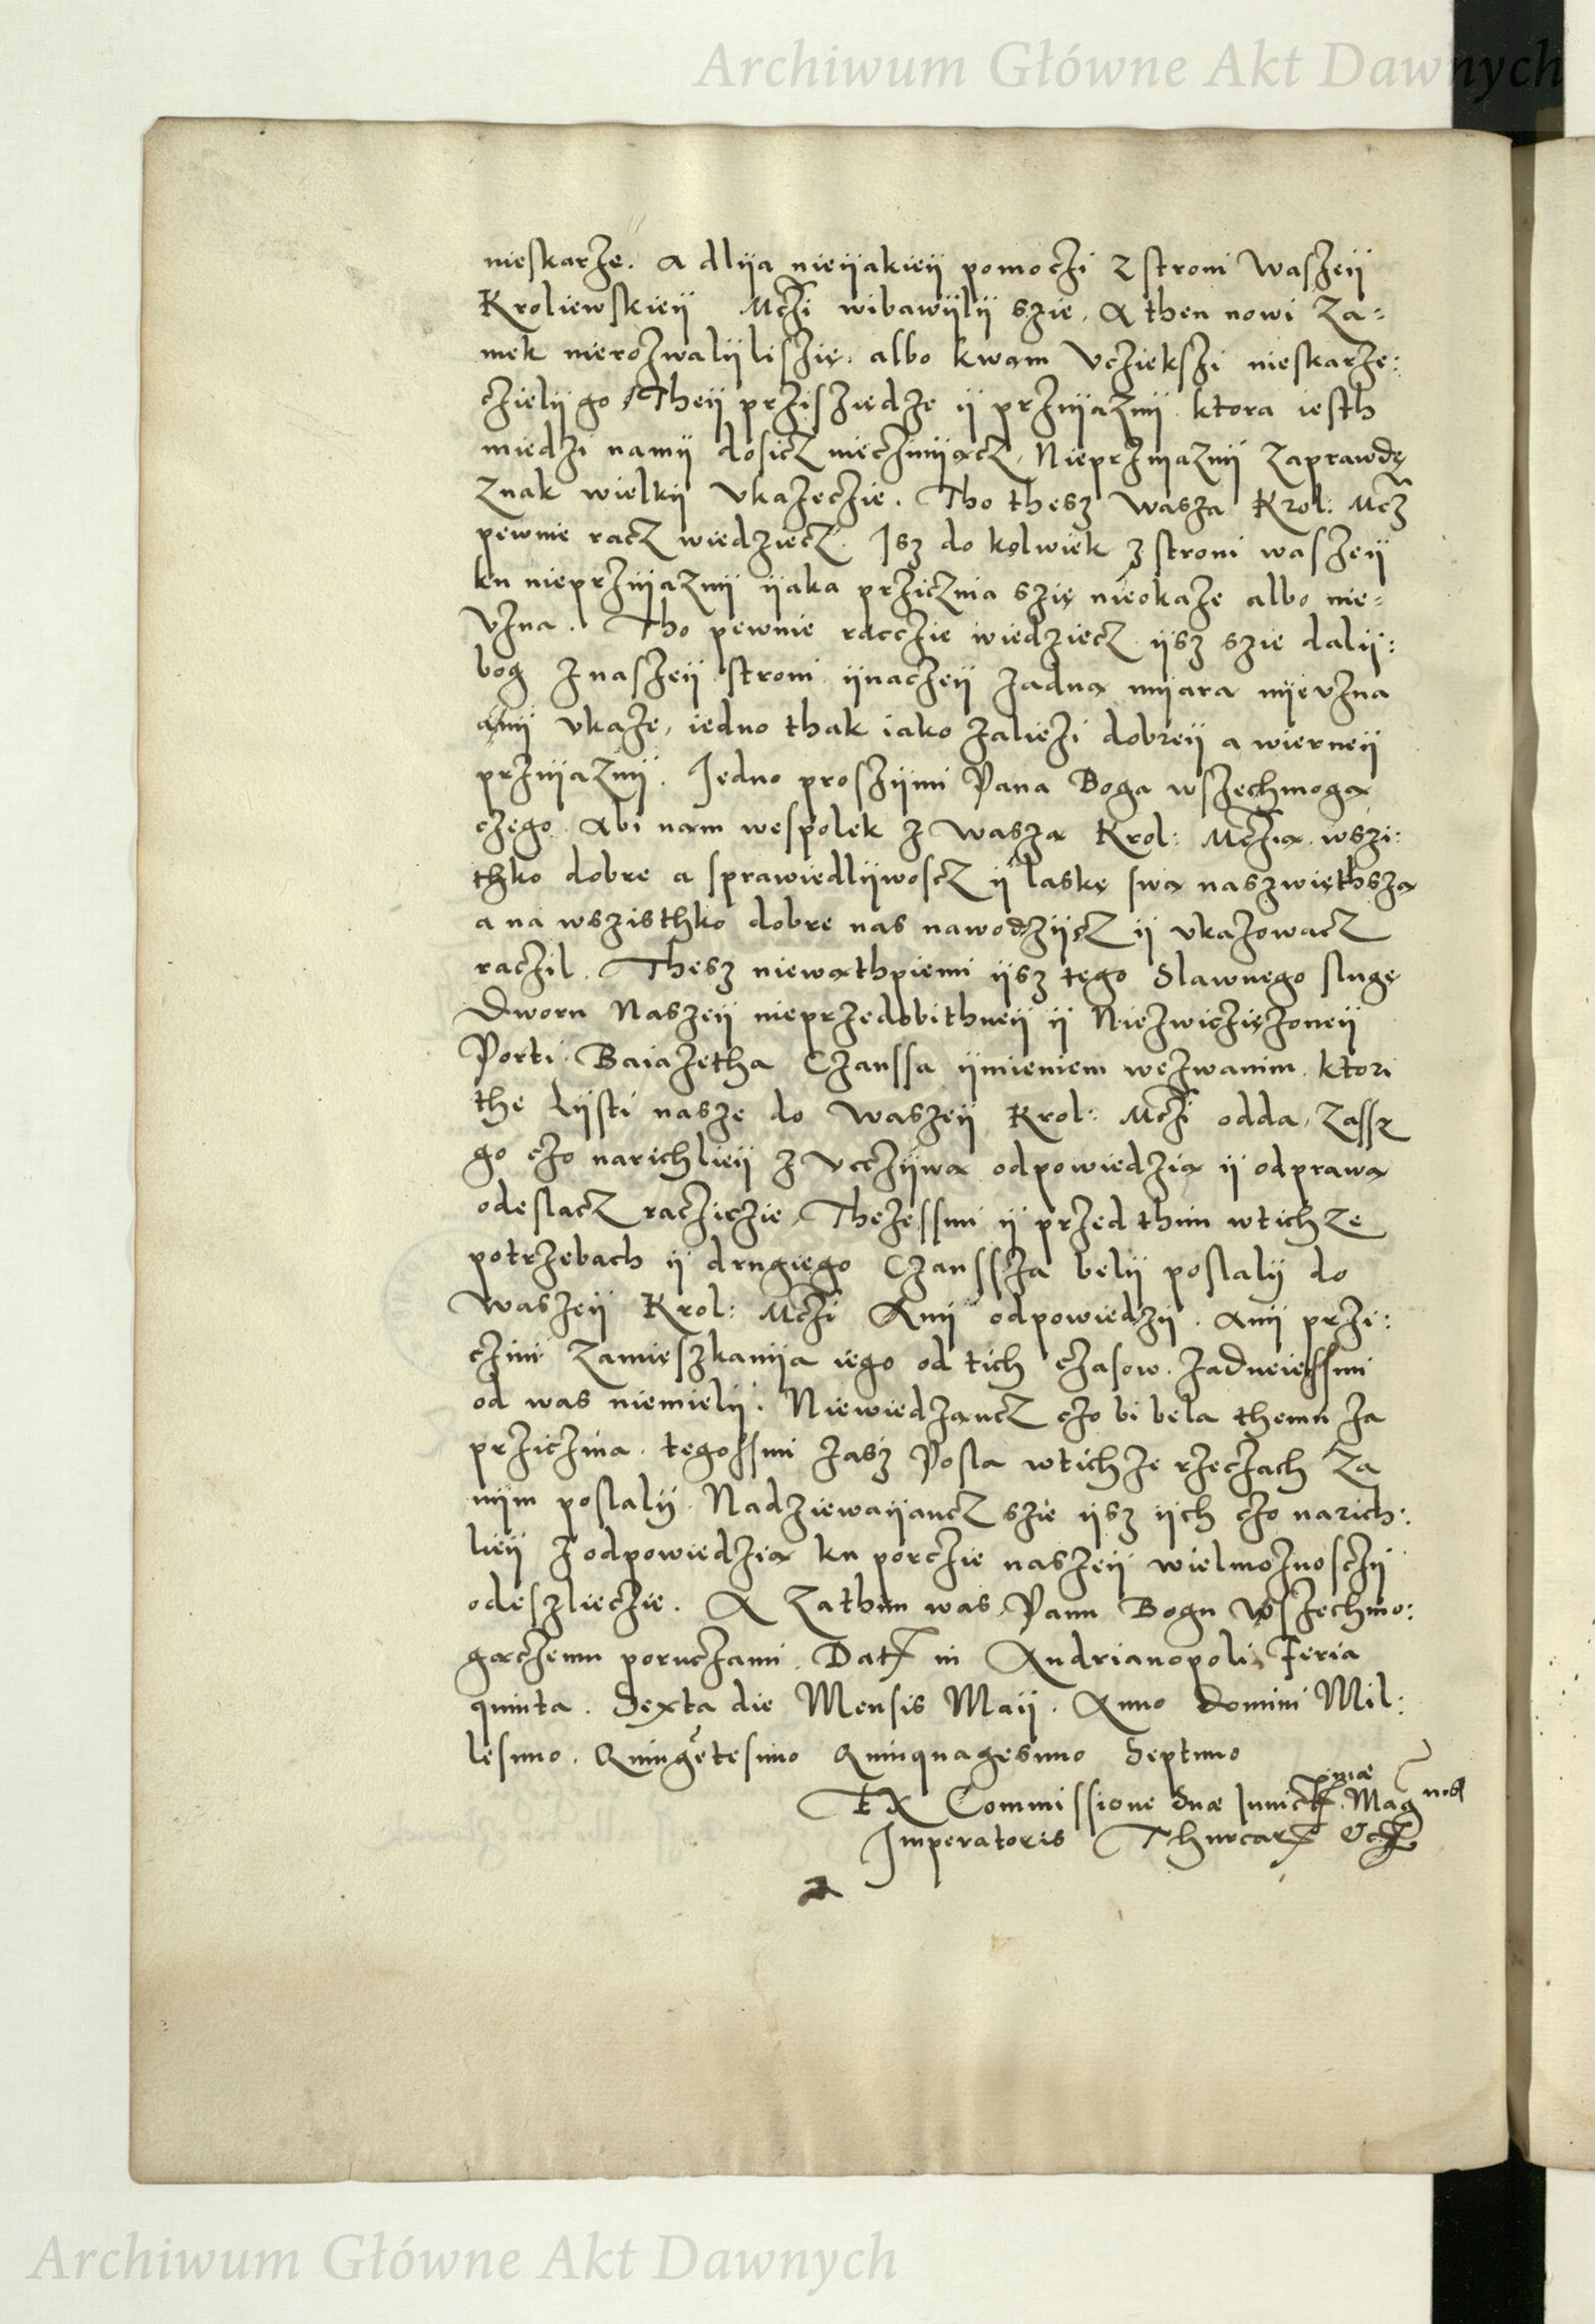 Archiwum Główne Akt Dawnych
nieskarze. a dlija nieijakieij pomoczi z stroni Waszeij
Kroliewskieij Mczi wibawijlij szie, A then nowi Za=
mek nierozwalijliszie. albo kwam Vcziekszi nieskarze:
czielij go, Theij przisziędze ij prznijaznij ktora iesth
miedzi namij dosicz niecziniјącz, Nieprzniaznij Zaprawdę
Znak wielkij Vkazeczie. Tho thesz Wasza Krol: Mcz
pewnie racz wiedziecz. Isz do kolwiek z stroni waszeij
ku nieprznijaznij ijaka prziczina szię nieokaze albo nie=
Vzna. Tho pewnie racczie wiedziecz ijsz szie dalij:
bog z naszeij stroni ijnaczeij zadna mijara nijevzna
anij Vkaze, iedno thak iako zaliezi dobreij a wierneij
prznijaznij. Jedno proszijmi Pana Boga wszechmogą
czego. Abi nam wespolek z Wasza Krol: Mczią. wszi:
thko dobre a sprawiedlijwoscz ij laskę swa naszwięthszą
a na wszisthko dobre nas nawodzijcz ij vkazowacz
raczil. Thesz niewathpiemi ijsz tego Slawnego slugę
Dworu Naszeij nieprzedobithneij ij Niezwiczięzoneij
Porti. Baiazetha Czaussa ijmieniem wezwanim. ktori
the Lijsti nasze do Waszeij Krol: Mczi odda, Zasse
go czo narichlieij z Vcczijwą odpowiedzią ij odprawą
odeslacz racziczie, Thezessmi ij przed thim wtichze
potrzebach ij drugiego Czaussza belij poslalij do
Waszeij Krol: Mczi Anij odpowiedzij. anij przi:
czini Zamięszkanija iego od tich czasow. zadneiessmi
od was niemielij. Niewiedzancz czo bi bela themu za
prziczina. tegossmi zasz Posla wtichze rzeczach Za
nijm poslalij. Nadziewaijancz szie ijsz ijch czo narich:
lieij z odpowiedzią ku porczie naszeij wielmoznosczij
odeszlieczie. A Zathim was Panu Bogu Wszechmo:
gączemu poruczami. Dat in Andrianopoli Feria
quinta. Sexta die Mensis Maij. Anno Domini Mil:
lesimo. Quingetesimo Quinquagesimo Septimo
Ex Commissione Suae Inuict
Imperatoris Thurcar
Archiwum Główne Akt Dawnych